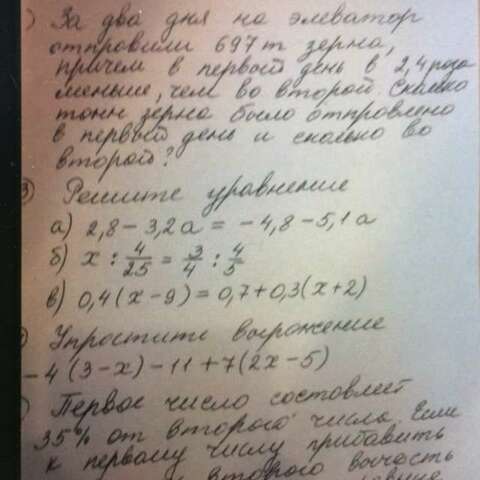 За два дня на элеватор
отправили 697 т зерна,
причем в первый день в 2,4 раза
меньше, чем во второй. Сколько
тонн зерна было отправлено
в первый день и сколько во
второй?
Решите уравнение
а) 2,8 - 3,2а = -4,8 - 5,1а
б) x : 4/25 = 3/4 : 4/5
в) 0,4(x-9) = 0,7+0,3(x+2)
Упростите выражение
-4(3-x)-11+7(2x-5)
Первое число составляет
35% от второго числа. Если
к первому числу прибавить
второго вычесть